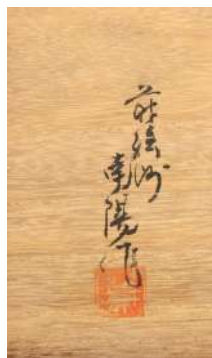 蒔絵師
南陽作